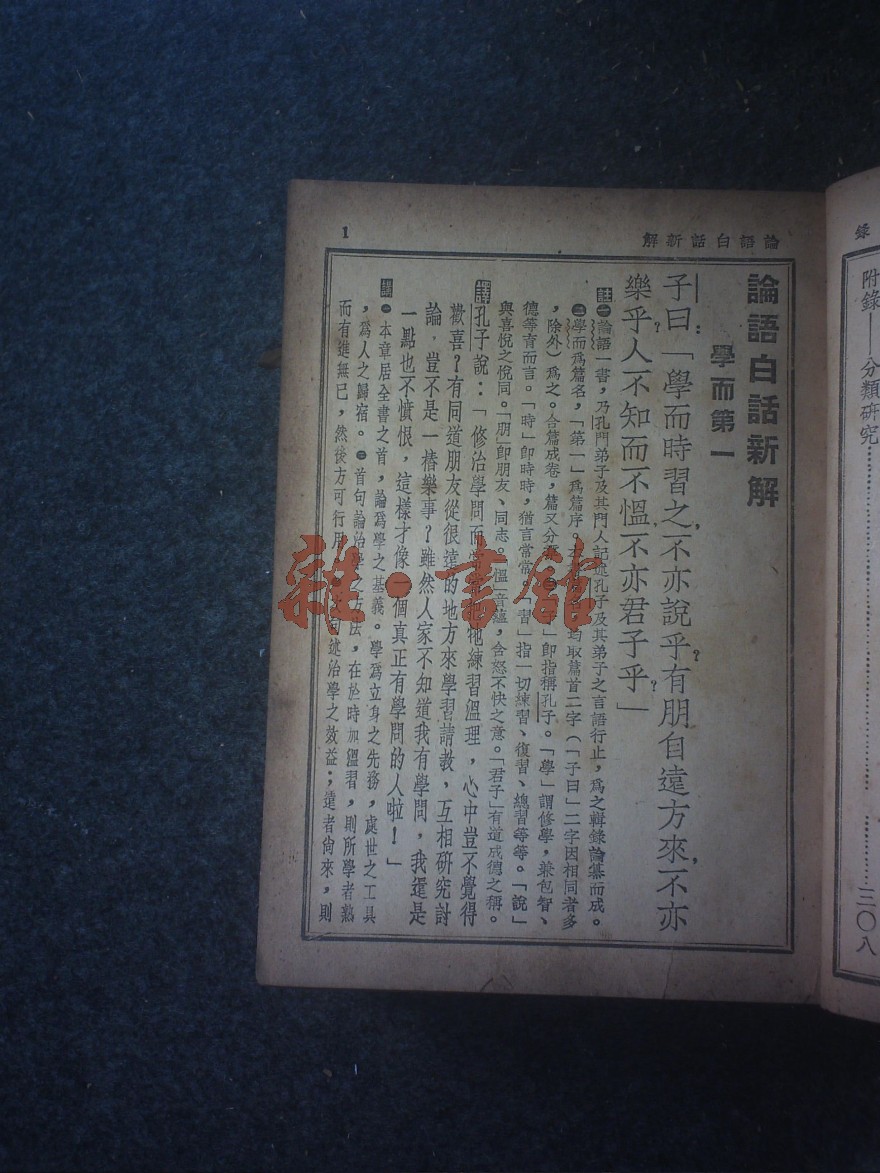 錄
附錄——分類研究……………………三〇八
論語白話新解
1
論語白話新解
學而第一
子曰：「學而時習之，不亦說乎？有朋自遠方來，不亦
樂乎？人不知而不慍，不亦君子乎？」
註㊀論語一書，乃孔門弟子及其門人記述孔子及其弟子之言語行止，爲之輯錄論纂而成。
㊁學而爲篇名，「第一」爲篇序，均取篇首二字（「子曰」二字因相同者多
，除外）爲之。合篇成卷，篇又分 即指稱孔子。「學」謂修學，兼包智、
德等育而言。「時」卽時時，猶言常常。「習」指一切練習、復習、總習等等。「說」
與喜悅之悅同。「朋」卽朋友、同志。「慍」音蘊，含怒不快之意。「君子」有道成德之稱。
譯孔子說：「修治學問而 練習溫理，心中豈不覺得
歡喜？有同道朋友從很遠的地方來學習請敎，互相研究討
論，豈不是一樁樂事？雖然人家不知道我有學問，我還是
一點也不憤恨，這樣才像一個真正有學問的人啦！」
講㊀本章居全書之首，論爲學之基義。學爲立身之先務，處世之工具
，爲人之歸宿。㊁首句論治學之方法，在於時加溫習，則所學者熟
而有進無已，然後方可行用 述治學之效益；遠者尙來，則
雜·書館